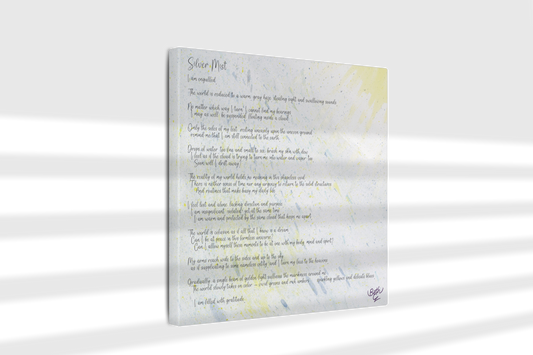 Silver Mist
I am engulfed.
The world is reduced to a warm, gray haze, stealing sight and swallowing sounds.
No matter which way I turn, I cannot find my bearings.
I may as well be suspended, floating inside a cloud.
Only the soles of my feet, resting on the uneven ground
remind me that I am still connected to the earth.
Drops of water, too tiny and small to see, brush my skin with dew.
I feel as if the cloud is trying to turn me into water and vapor too.
Soon will I drift away?
The reality of my world holds no meaning in this shapeless void.
There is neither sense of time nor any urgency to return to the solid structures
And routines that make busy my daily life.
I feel lost and alone, lacking direction and purpose.
I am insignificant, isolated, yet at the same time
I am warm and protected by the same cloud that keeps me apart.
The world is colorless as if all that I knew is a dream.
Can I be at peace in this formless unknown?
Can I allow myself these moments to be at one with my body, mind and spirit?
My arms reach wide to the sides and up to the sky
as if supplicating to some invisible deity and I turn my face to the heavens.
Gradually, a single beam of golden light outlines the murkiness around me.
The world slowly takes on color - vivid greens and rich umbers - sparkling yellows and distant blues.
I am filled with gratitude.